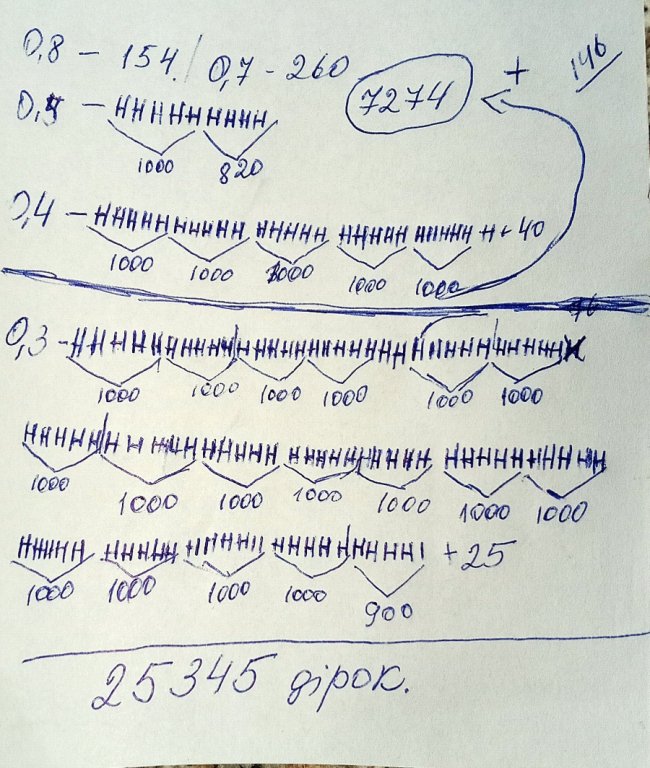 0,8 – 154. / 0,7 – 260
7274 + 146
0,5 –
1000 820
0,4 – + 40
1000 1000 1000 1000 1000
0,3 –
1000 1000 1000 1000 1000 1000
1000 1000 1000 1000 1000 1000 1000
+ 25
1000 1000 1000 1000 900
25345 дірок.